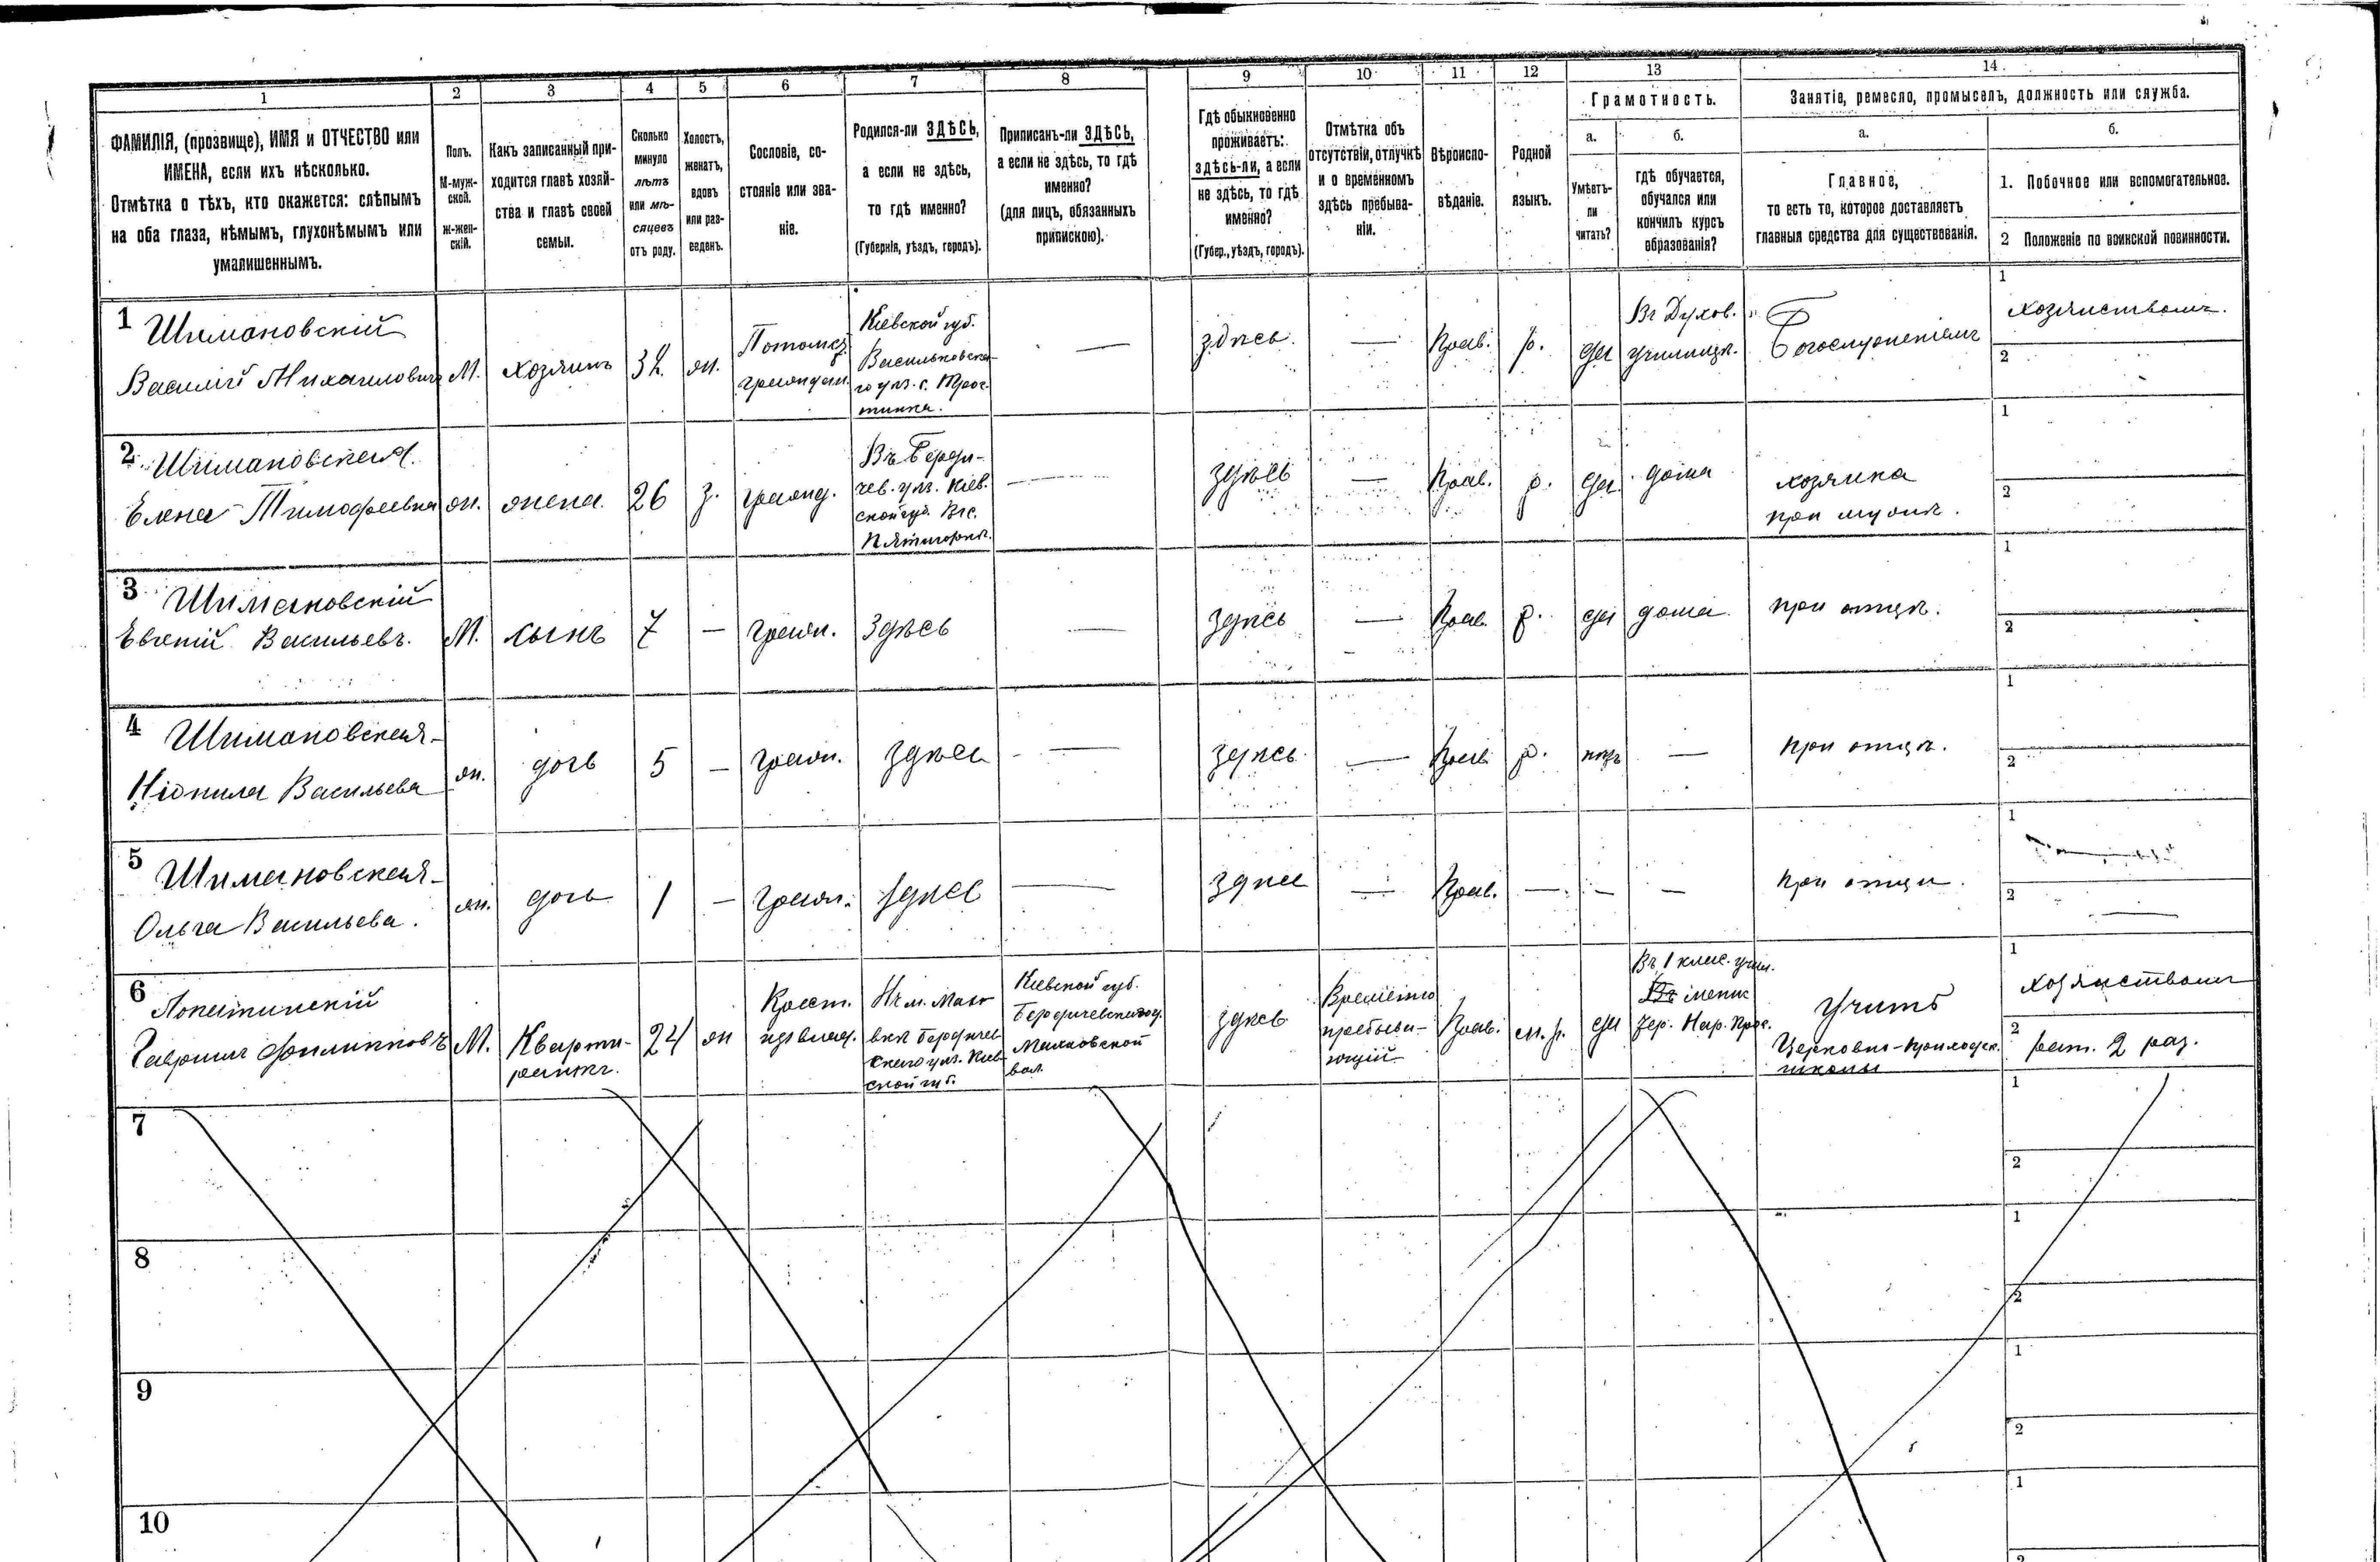 1 2 3 4 5 6 7 8 9 10 11 12 13 14
ФАМИЛІЯ, (прозвище), ИМЯ и ОТЧЕСТВО или
ИМЕНА, если ихъ нѣсколько.
Отмѣтка о тѣхъ, кто окажется: слѣпымъ
на оба глаза, нѣмымъ, глухонѣмымъ или
умалишеннымъ.
Полъ.
М-муж-
ской.
Ж-жен-
скій.
Какъ записанный при-
ходится главѣ хозяй-
ства и главѣ своей
семьи.
Сколько
минуло
лѣтъ
или мѣ-
сяцевъ
отъ роду.
Холостъ,
женатъ,
вдовъ
или раз-
веденъ.
Сословіе, со-
стояніе или зва-
ніе.
Родился-ли ЗДѢСЬ,
а если не здѣсь,
то гдѣ именно?
(Губернія, уѣздъ, городъ).
Приписанъ-ли ЗДѢСЬ,
а если не здѣсь, то гдѣ
именно?
(для лицъ, обязанныхъ
припискою).
Гдѣ обыкновенно
проживаетъ:
здѣсь-ли, а если
не здѣсь, то гдѣ
именно?
(Губер., уѣздъ, городъ).
Отмѣтка объ
отсутствіи, отлучкѣ
и о временномъ
здѣсь пребыва-
ніи.
Вѣроиспо-
вѣданіе.
Родной
языкъ.
Грамотность.
а.
Умѣетъ-
ли
читать?
б.
гдѣ обучается,
обучался или
кончилъ курсъ
образованія?
Занятіе, ремесло, промыселъ, должность или служба.
а.
Главное,
то есть то, которое доставляетъ
главныя средства для существованія.
б.
1. Побочное или вспомогательное.
2 Положеніе по воинской повинности.
1 Шимановскій
Василій Михаиловичъ
М.
хозяинъ
32
ж.
Потомст.
граждан.
Кіевской губ.
Васильковска-
го уѣз. с.
здѣсь.
—
Прав.
р.
да
Въ Духов.
училищѣ.
Богослуженіемъ
1
хозяйствомъ.
2
2 Шимановская
Елена Тимофеевна
ж.
жена
26
з.
гражд.
Въ Берди-
чев. уѣз. Кіев-
ской губ. Въ с.
Пятигорахъ.
—
здѣсь
—
Прав.
р.
да
дома
хозяйка
при мужѣ.
1
2
3 Шимановскій
Евгеній Васильевъ.
М.
сынъ
7
—
гражд.
Здѣсь
—
здѣсь
—
Прав.
р.
да
дома
при отцѣ.
1
2
4 Шимановская
Неонила Васильева
ж.
дочь
5
—
гражд.
здѣсь
—
здѣсь
—
Прав.
р.
нѣтъ
—
при отцѣ.
1
2
5 Шимановская
Ольга Васильева.
ж.
дочь
1
—
гражд.
здѣсь
—
здѣсь
—
Прав.
—
—
—
при отцѣ.
1
2
—
6 Лопатинскій
Гавріилъ Филипповъ
М.
Кварти-
рантъ.
24
ж
Крест.
изъ влад.
Въ м. Мах-
вкѣ Бердичев-
скаго уѣз. Кіев-
ской губ.
Кіевской губ.
Бердичевскаго у.
Махновской
вол.
здѣсь
Временно
пребыва-
ющій
Прав.
м.р.
да
Въ 1 клас. учил.
Мин.
Нар. Прос.
Учит.
Церковно-приходск.
школы
1
хозяйствомъ
2
рат. 2 раз.
7
1
2
8
1
2
9
1
2
10
1
2